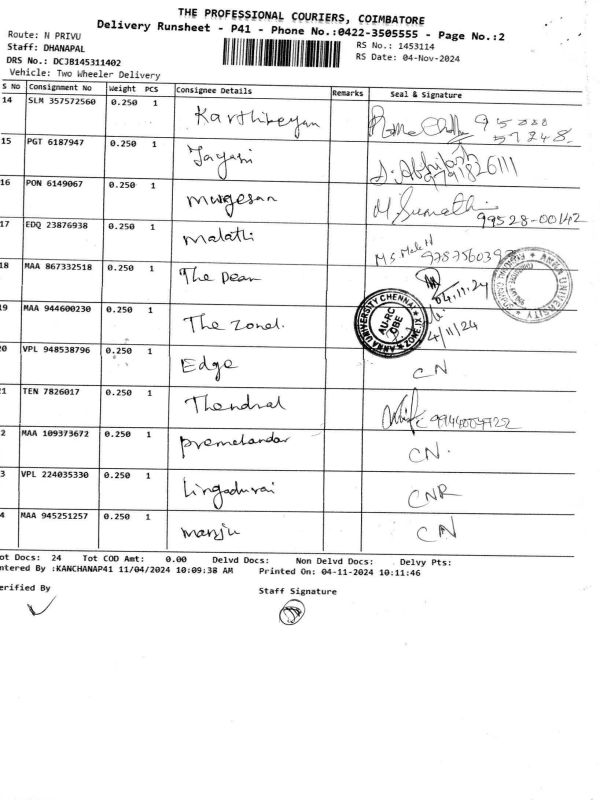 THE PROFESSIONAL COURIERS, COIMBATORE
Delivery Runsheet - P41 - Phone No.:0422-3505555 - Page No.:2
Route: N PRIVU
RS No.: 1453114
Staff: DHANAPAL
RS Date: 04-Nov-2024
DRS No.: DCJB145311402
Vehicle: Two Wheeler Delivery
S No Consignment No Weight PCS Consignee Details Remarks Seal & Signature
14 SLM 357572560 0.250 1 Karthikeyan 95000
57248.
15 PGT 6187947 0.250 1 Jayani 9791826111
16 PON 6149067 0.250 1 Murgesan M. Sumathi
99528-00142
17 EDQ 23876938 0.250 1 Malathi
18 MAA 867332518 0.250 1 The Dean 04.11.24
19 MAA 944600230 0.250 1 The Zonel. 4/11/24
ANNA UNIVERSITY CHENNAI
AU-RC
OBE
20 VPL 948538796 0.250 1 Edge CN
21 TEN 7826017 0.250 1 Thendral 9944004722
2 MAA 109373672 0.250 1 Premelandar CN.
3 VPL 224035330 0.250 1 Lingadurai CNR
4 MAA 945251257 0.250 1 Manju CN
ot Docs: 24 Tot COD Amt: 0.00 Delvd Docs: Non Delvd Docs: Delvy Pts:
ntered By :KANCHANAP41 11/04/2024 10:09:38 AM Printed On: 04-11-2024 10:11:46
erified By
Staff Signature